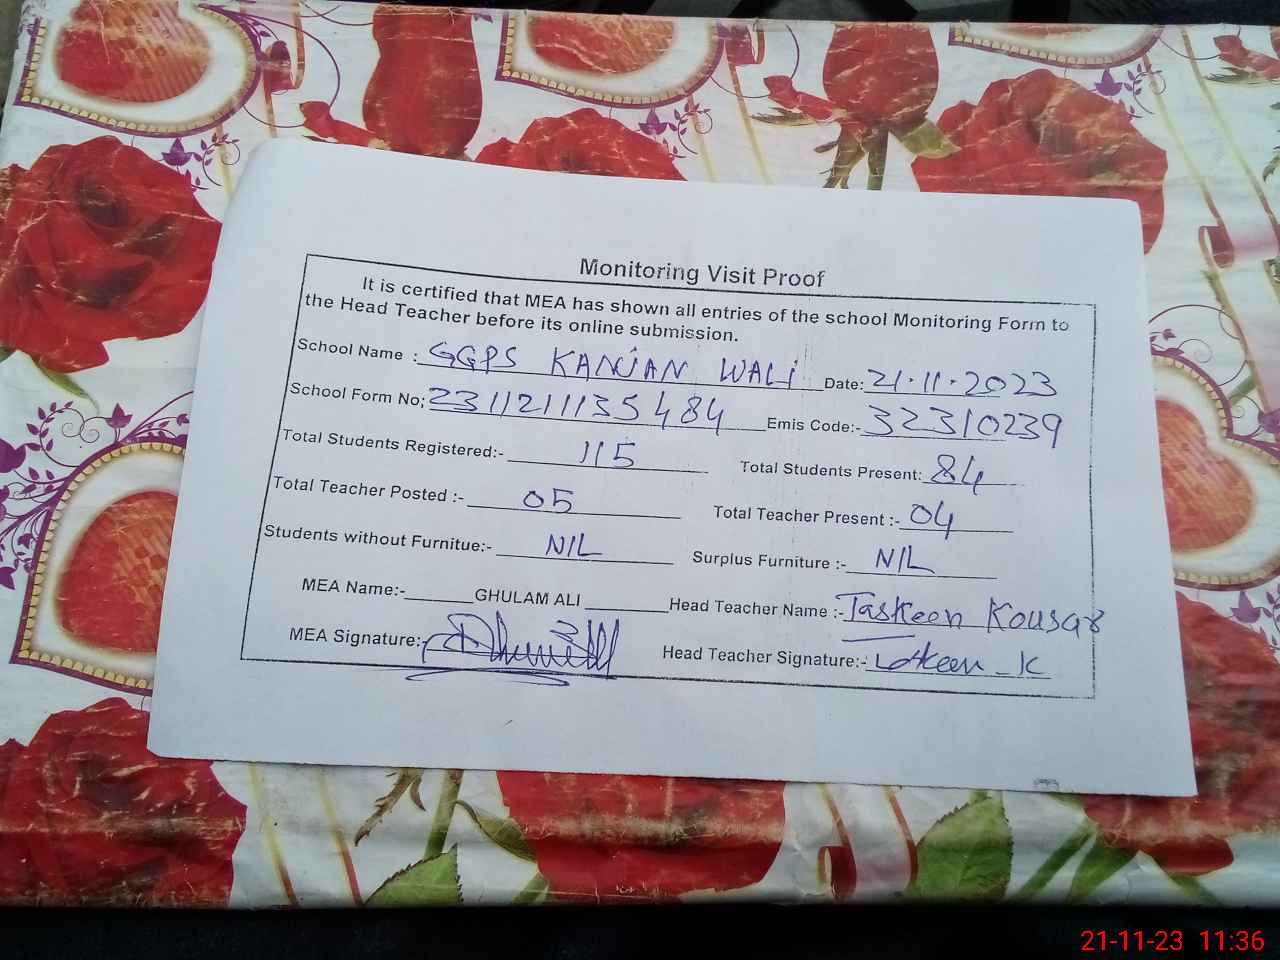 Monitoring Visit Proof
It is certified that MEA has shown all entries of the school Monitoring Form to
the Head Teacher before its online submission.
School Name : GGPS KANJAN WALI Date: 21.11.2023
School Form No; 2311211135484 Emis Code:- 32310239
Total Students Registered:- 115 Total Students Present: 84
Total Teacher Posted :- 05 Total Teacher Present :- 04
Students without Furnitue:- NIL Surplus Furniture :- NIL
MEA Name:- GHULAM ALI Head Teacher Name :- Taskeen Kousar
MEA Signature:- Head Teacher Signature:-
21-11-23 11:36